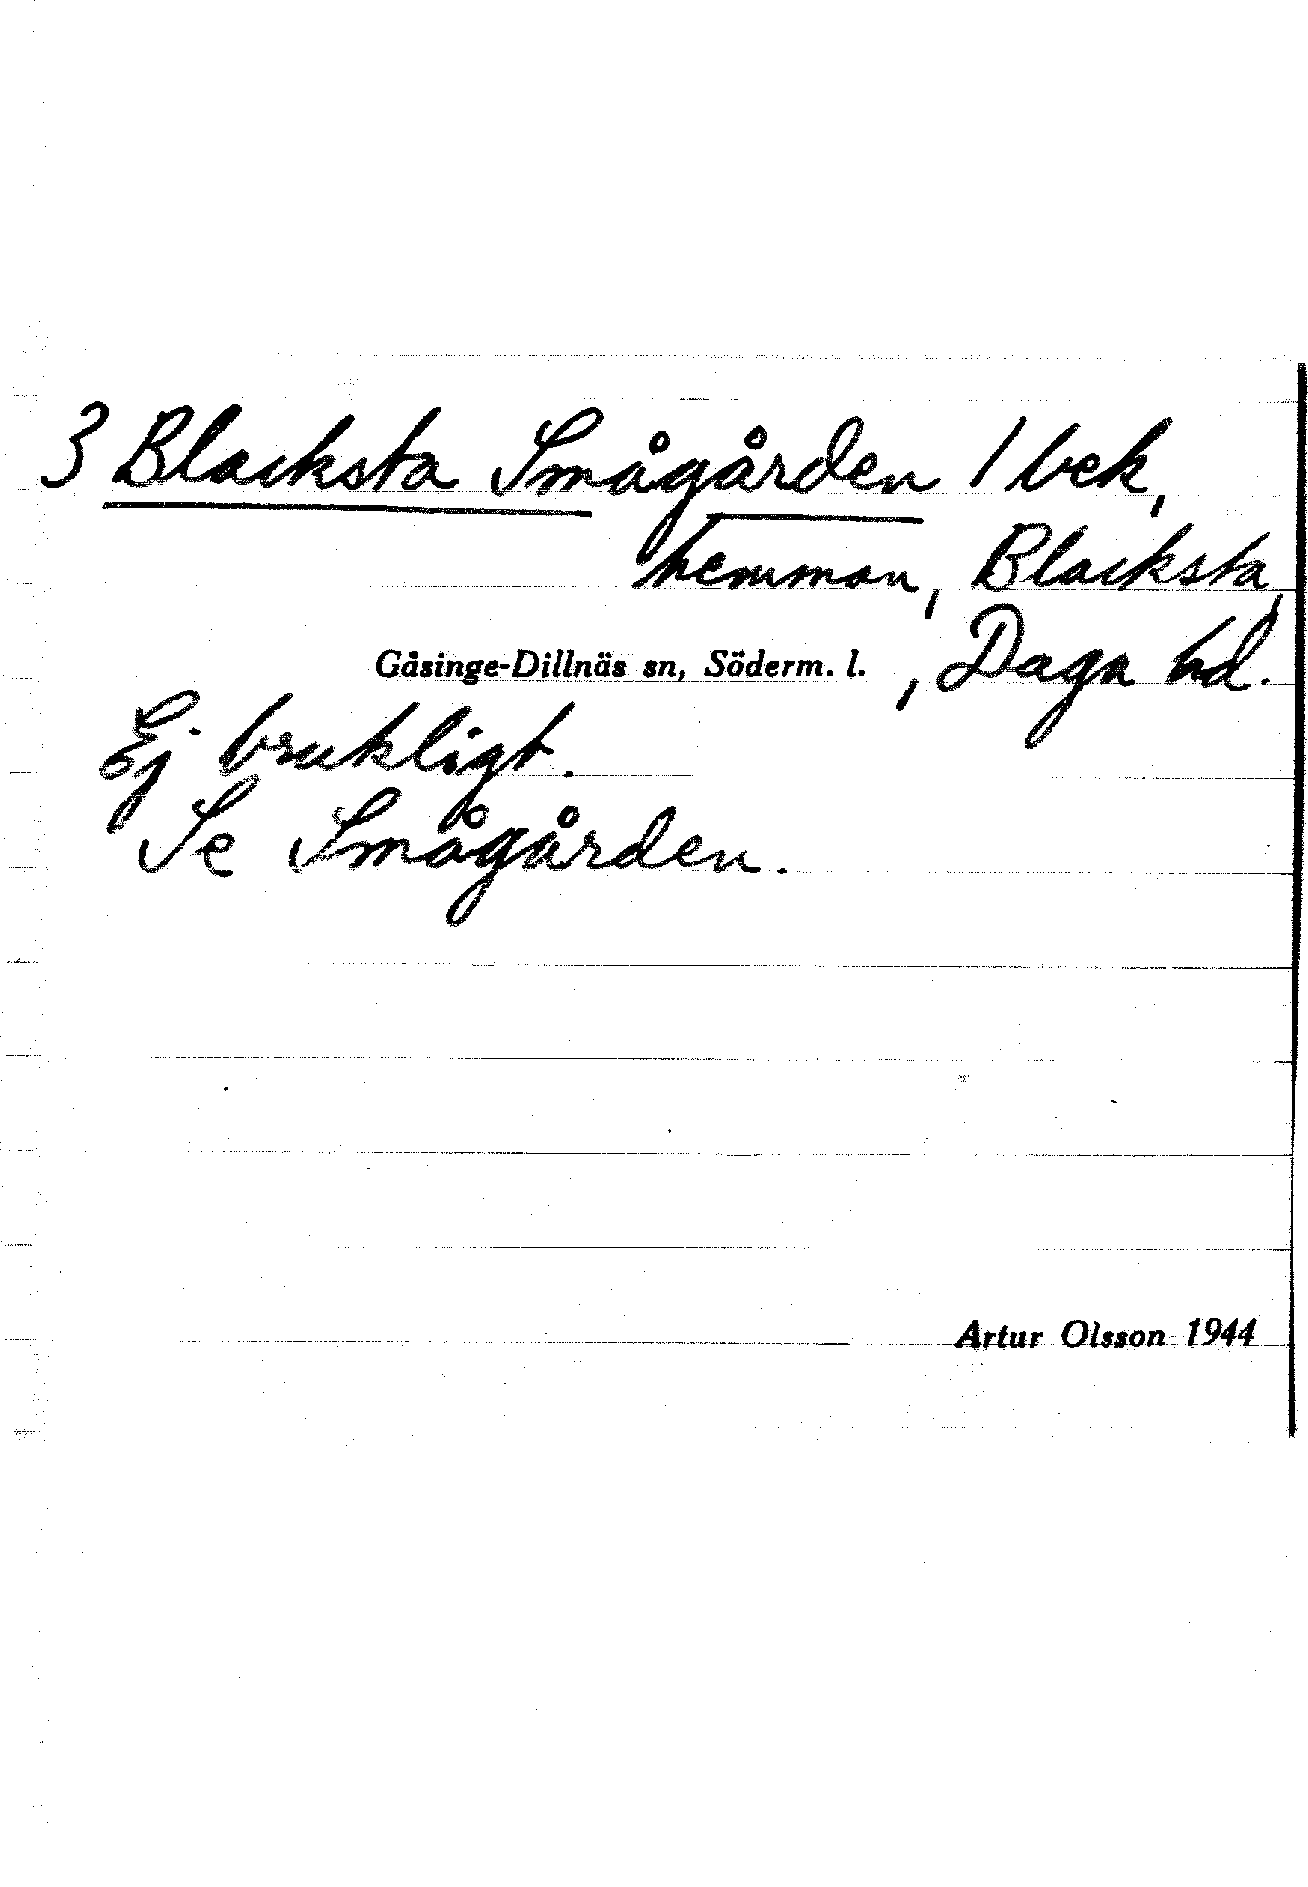 3 Blacksta Smågården / bek,
hemman, Blacksta,
Gåsinge-Dillnäs sn, Söderm. l. , Daga hd.
Ej brukligt.
Se Smågården.
Artur Olsson 1944